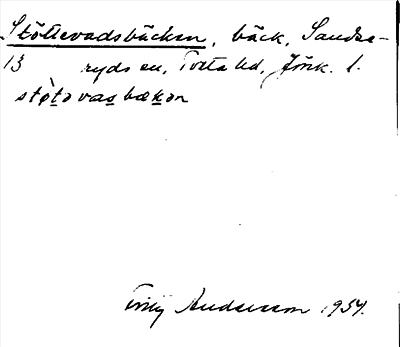 Stöttevadsbäcken, bäck, Sandse-
13 ryds sn, Tveta hd, Jönk. l.
stø̀təvasbækən
Andersson 1934.